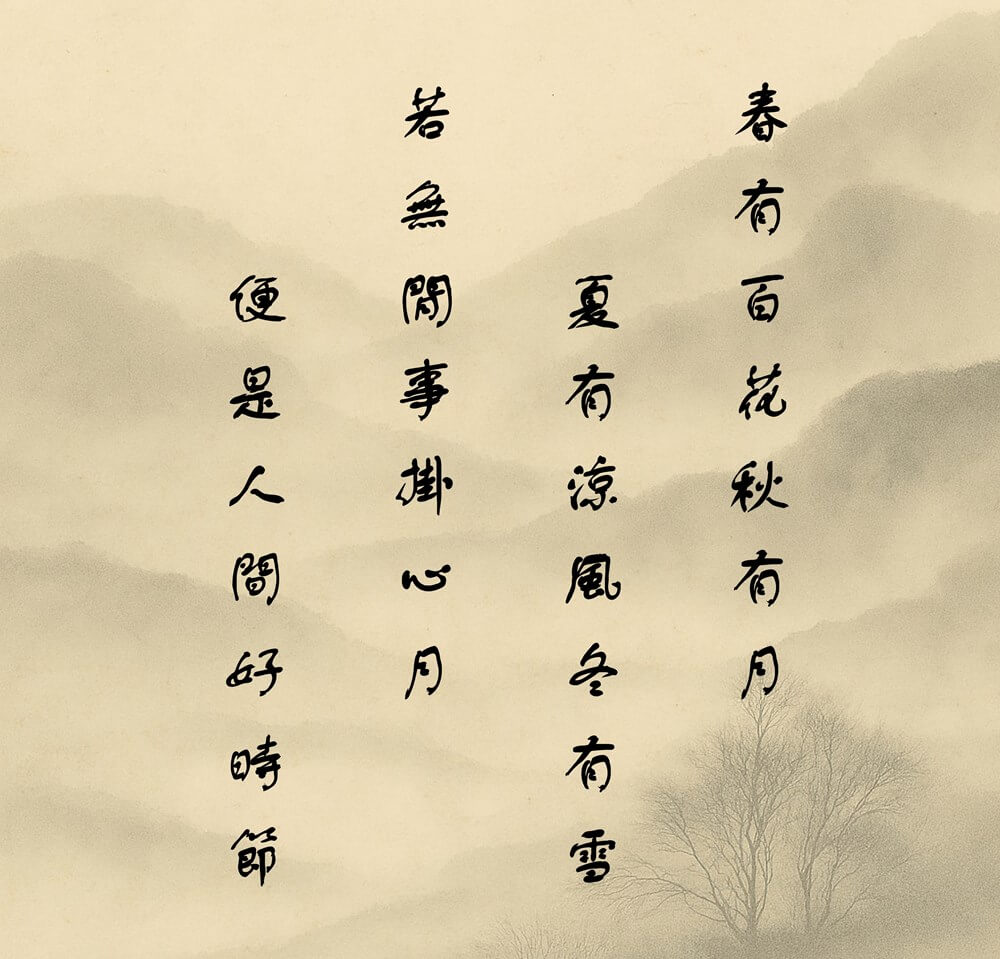 春有百花秋有月
夏有涼風冬有雪
若無閒事掛心月
便是人間好時節